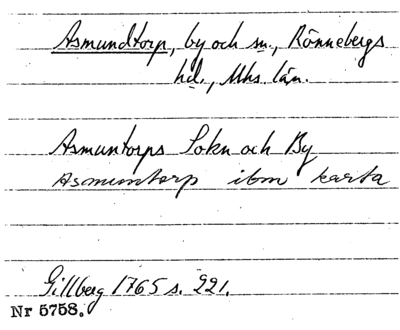 Asmundtorp, by och sn., Rönnebergs
hd., Mhs. län.
Asmuntorps Sokn och By
Asmumtorp ibm karta
Gillberg 1765 s. 221.
Nr 5758.